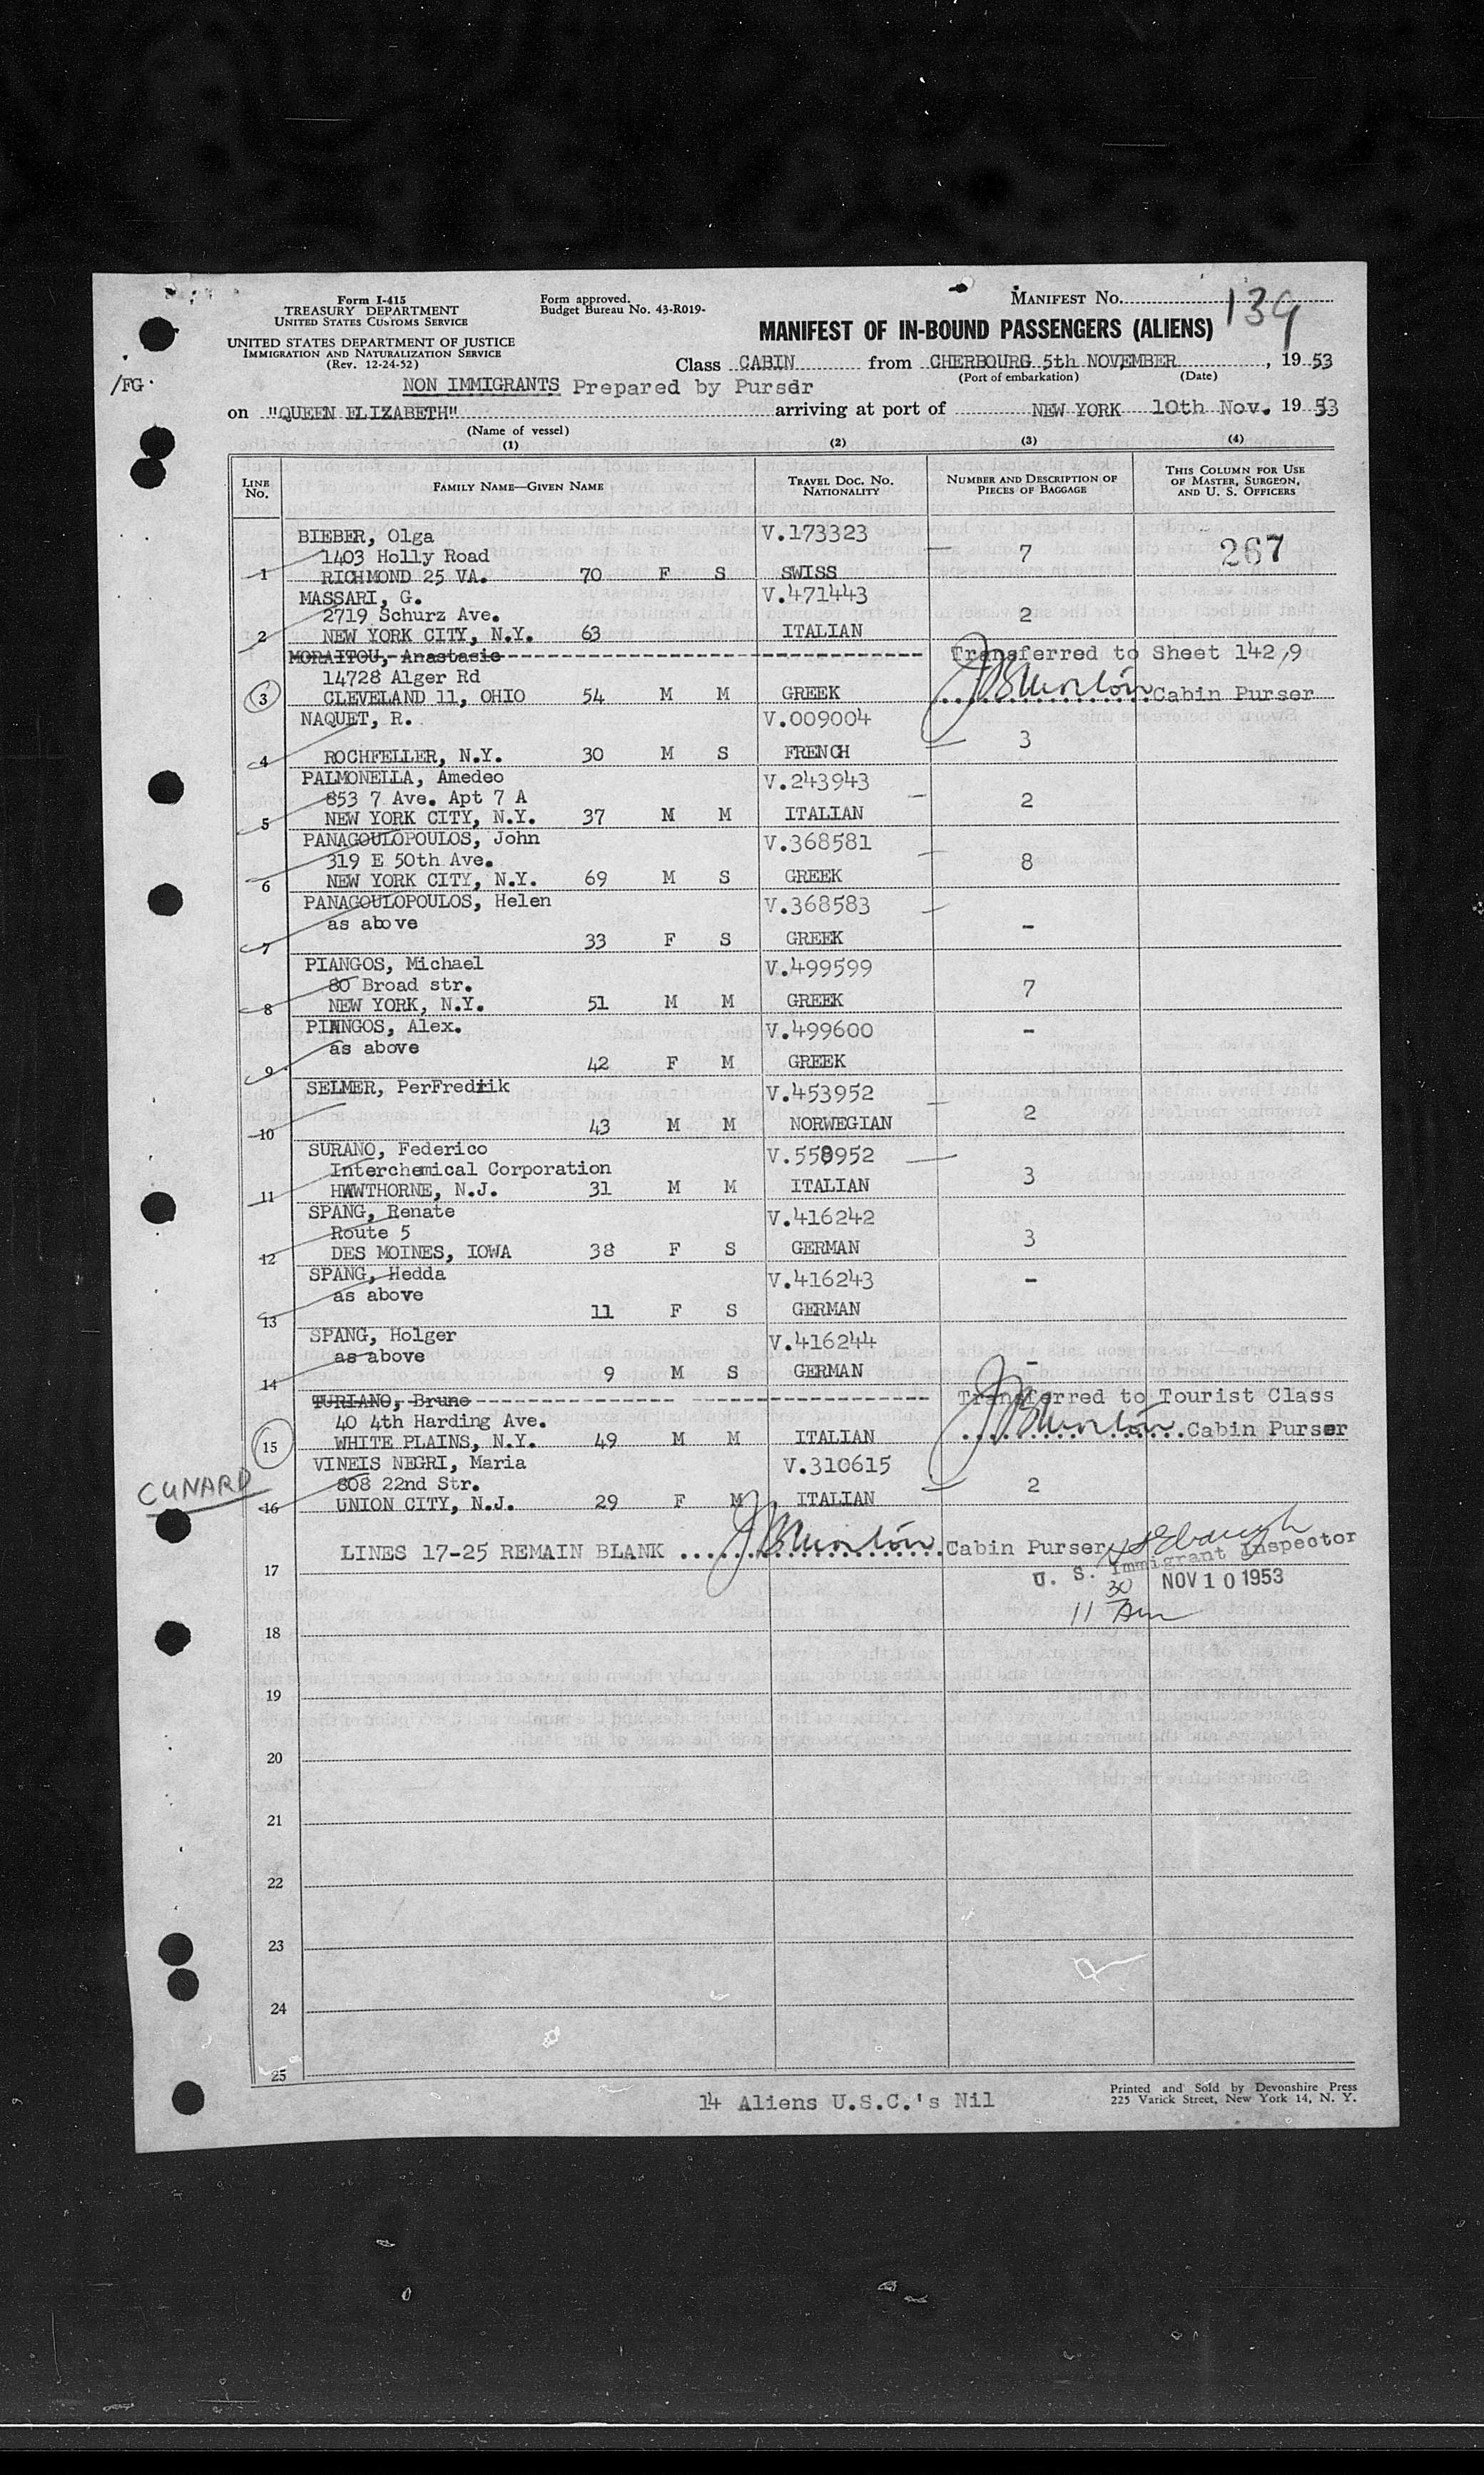 Form I-415
TREASURY DEPARTMENT
UNITED STATES CUSTOMS SERVICE
UNITED STATES DEPARTMENT OF JUSTICE
IMMIGRATION AND NATURALIZATION SERVICE
(Rev. 12-24-52)
Form approved.
Budget Bureau No. 43-R019-
MANIFEST No. 139
MANIFEST OF IN-BOUND PASSENGERS (ALIENS)
/FG.
Class CABIN from CHERBOURG 5th NOVEMBER, 19 53
(Port of embarkation) (Date)
NON IMMIGRANTS Prepared by Pursdr
on "QUEEN ELIZABETH" arriving at port of NEW YORK 10th Nov. 19 53
(Name of vessel)
(1) (2) (3) (4)
LINE No. FAMILY NAME—GIVEN NAME TRAVEL DOC. NO. NATIONALITY NUMBER AND DESCRIPTION OF PIECES OF BAGGAGE THIS COLUMN FOR USE OF MASTER, SURGEON, AND U. S. OFFICERS
BIEBER, Olga V.173323
1403 Holly Road 7 267
1 RICHMOND 25 VA. 70 F S SWISS
MASSARI, G. V.471443
2719 Schurz Ave. 2
2 NEW YORK CITY, N.Y. 63 ITALIAN
MORAITOU, Anastasie Transferred to Sheet 142,9
14728 Alger Rd
3 CLEVELAND 11, OHIO 54 M M GREEK Cabin Purser
NAQUET, R. V.009004
3
4 ROCHFELLER, N.Y. 30 M S FRENCH
PALMONELLA, Amedeo V.243943
853 7 Ave. Apt 7 A 2
5 NEW YORK CITY, N.Y. 37 M M ITALIAN
PANAGOULOPOULOS, John V.368581
319 E 50th Ave. 8
6 NEW YORK CITY, N.Y. 69 M S GREEK
PANAGOULOPOULOS, Helen V.368583
as above -
7 33 F S GREEK
PIANGOS, Michael V.499599
80 Broad str. 7
8 NEW YORK, N.Y. 51 M M GREEK
PIANGOS, Alex. V.499600 -
as above
9 42 F M GREEK
SELMER, PerFredrik V.453952
2
10 43 M M NORWEGIAN
SURANO, Federico V.558952
Interchemical Corporation 3
11 HAWTHORNE, N.J. 31 M M ITALIAN
SPANG, Renate V.416242
Route 5 3
12 DES MOINES, IOWA 38 F S GERMAN
SPANG, Hedda V.416243 -
as above
13 11 F S GERMAN
SPANG, Holger V.416244
as above -
14 9 M S GERMAN
TURIANO, Bruno Transferred to Tourist Class
40 4th Harding Ave.
15 WHITE PLAINS, N.Y. 49 M M ITALIAN Cabin Purser
VINEIS NEGRI, Maria V.310615
CUNARD 808 22nd Str. 2
16 UNION CITY, N.J. 29 F M ITALIAN
LINES 17-25 REMAIN BLANK Cabin Purser
U. S. Immigrant Inspector
17 NOV 10 1953
11 30 Am
18
19
20
21
22
23
24
25
14 Aliens U.S.C.'s Nil
Printed and Sold by Devonshire Press
225 Varick Street, New York 14, N. Y.